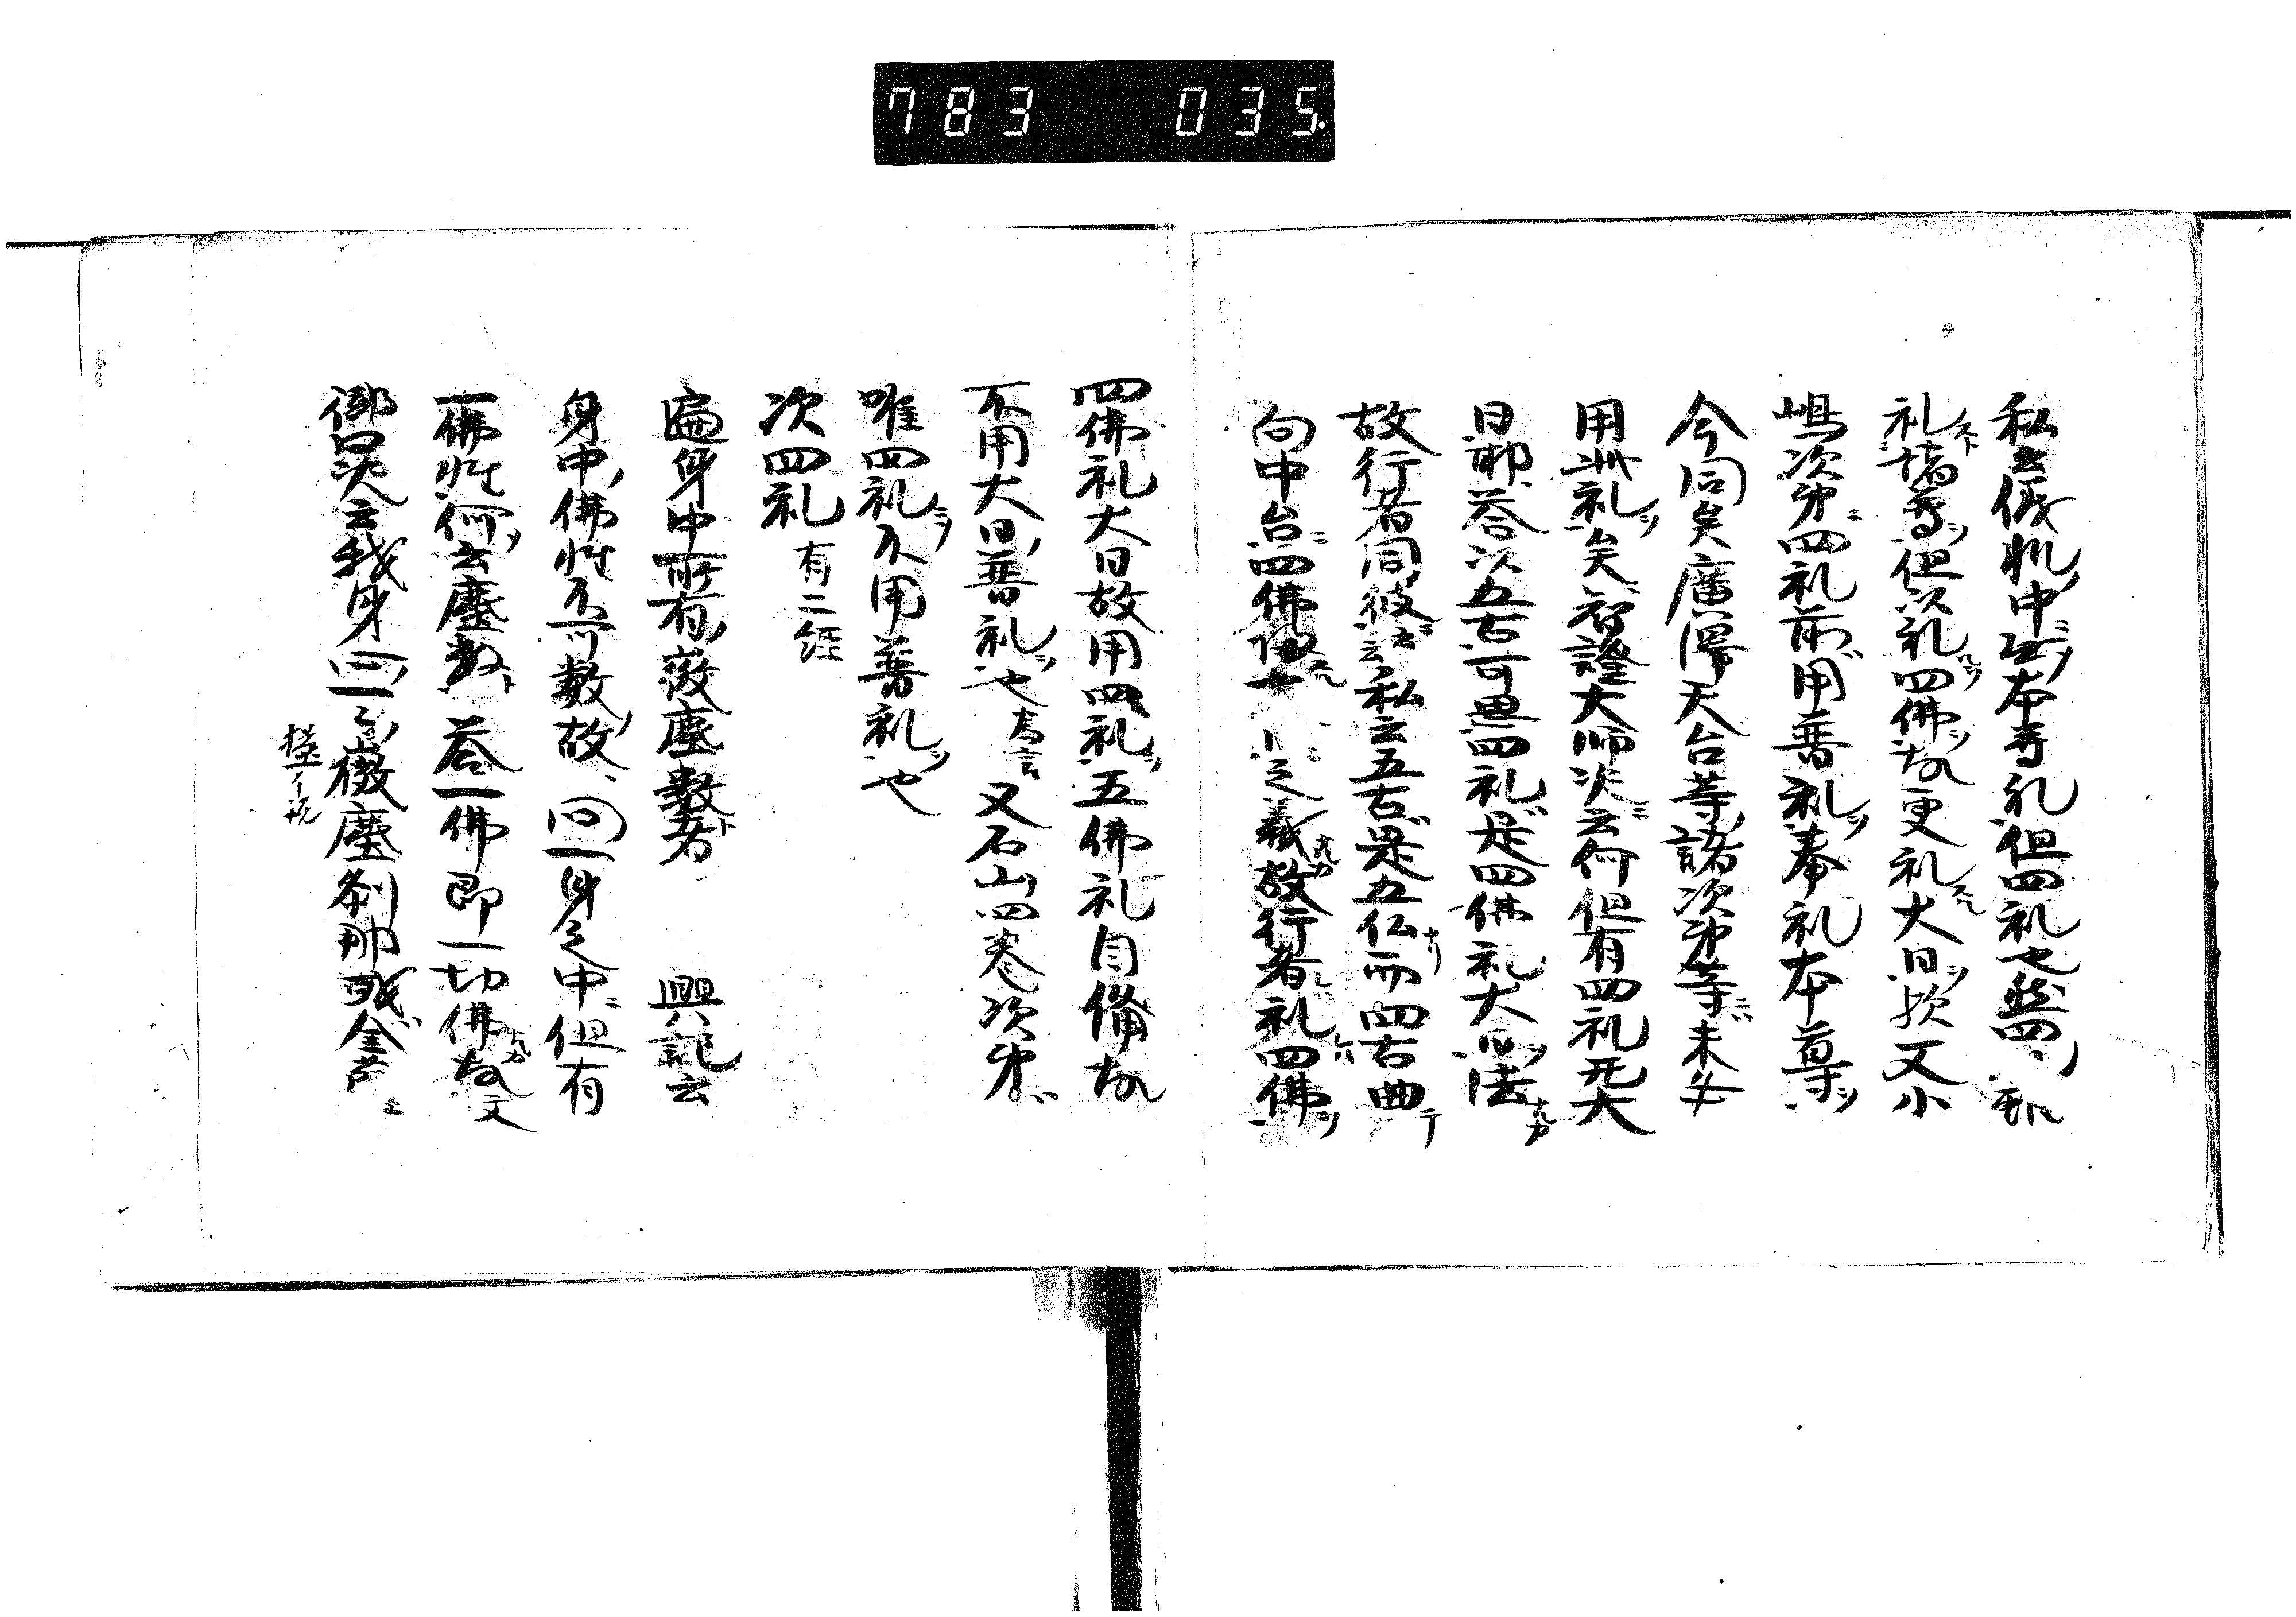 783 035
私云儀軌中無本尊礼但四礼也
礼諸尊但以礼四佛故更礼大日欤又小
嶋次第四礼前用普礼奉礼本尊
今同矣廣澤天台等諸次第等未必
用此礼矣智證大師次云何但有四礼无大
日耶答以五古可思四礼是四佛礼大日法
故行者同彼云云私云五古是五仏而四古曲
向中台四佛之義故行者礼四佛
四佛礼大日故用四礼五佛礼自備故
不用大日普礼也 又石山四卷次第
唯四礼不用普礼也
次四礼 有二経
遍身中所有微塵數者 興記云
身中佛性不可數故問一身之中但有
一佛性何云塵數答一佛即一切佛故文
御口决云我身一微塵刹那